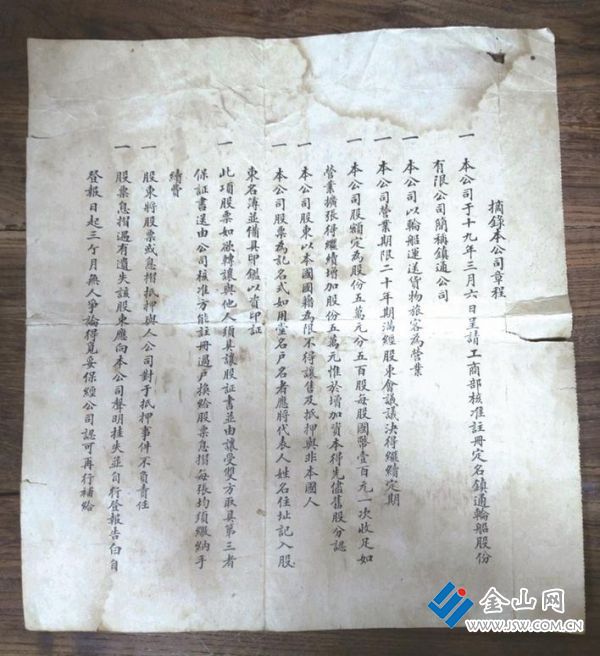 摘錄本公司章程
一 本公司于十九年三月六日呈請工商部核准註冊定名鎮通輪船股份
有限公司簡稱鎮通公司
一 本公司以輪船運送貨物旅客為營業
一 本公司營業期限二十年期滿經股東會議議決得繼續定期
一 本公司股額定為股份五萬元分五百股每股國幣壹百元一次收足如
營業擴張得繼續增加股份五萬元惟於增加資本得先儘舊股分認
一 本公司股東以本國國籍為限不得讓售及抵押與非本國人
一 本公司股票為記名式如用堂名戶名者應將代表人姓名住址記入股
東名簿並備具印鑑以資印証
一 此項股票如欲轉讓與他人須具讓股証書並由讓受雙方取具第三者
保証書送由公司核准方能註冊過户換給股票息摺每張均須繳納手
續費
一 股東將股票或息摺抵押與人公司對于抵押事件不負責任
一 股票息摺遇有遺失該股東應向本公司聲明挂失並自行登報告白自
登報日起三个月無人爭論得覓妥保經公司認可再行補給
金山网
WWW.JSW.COM.CN